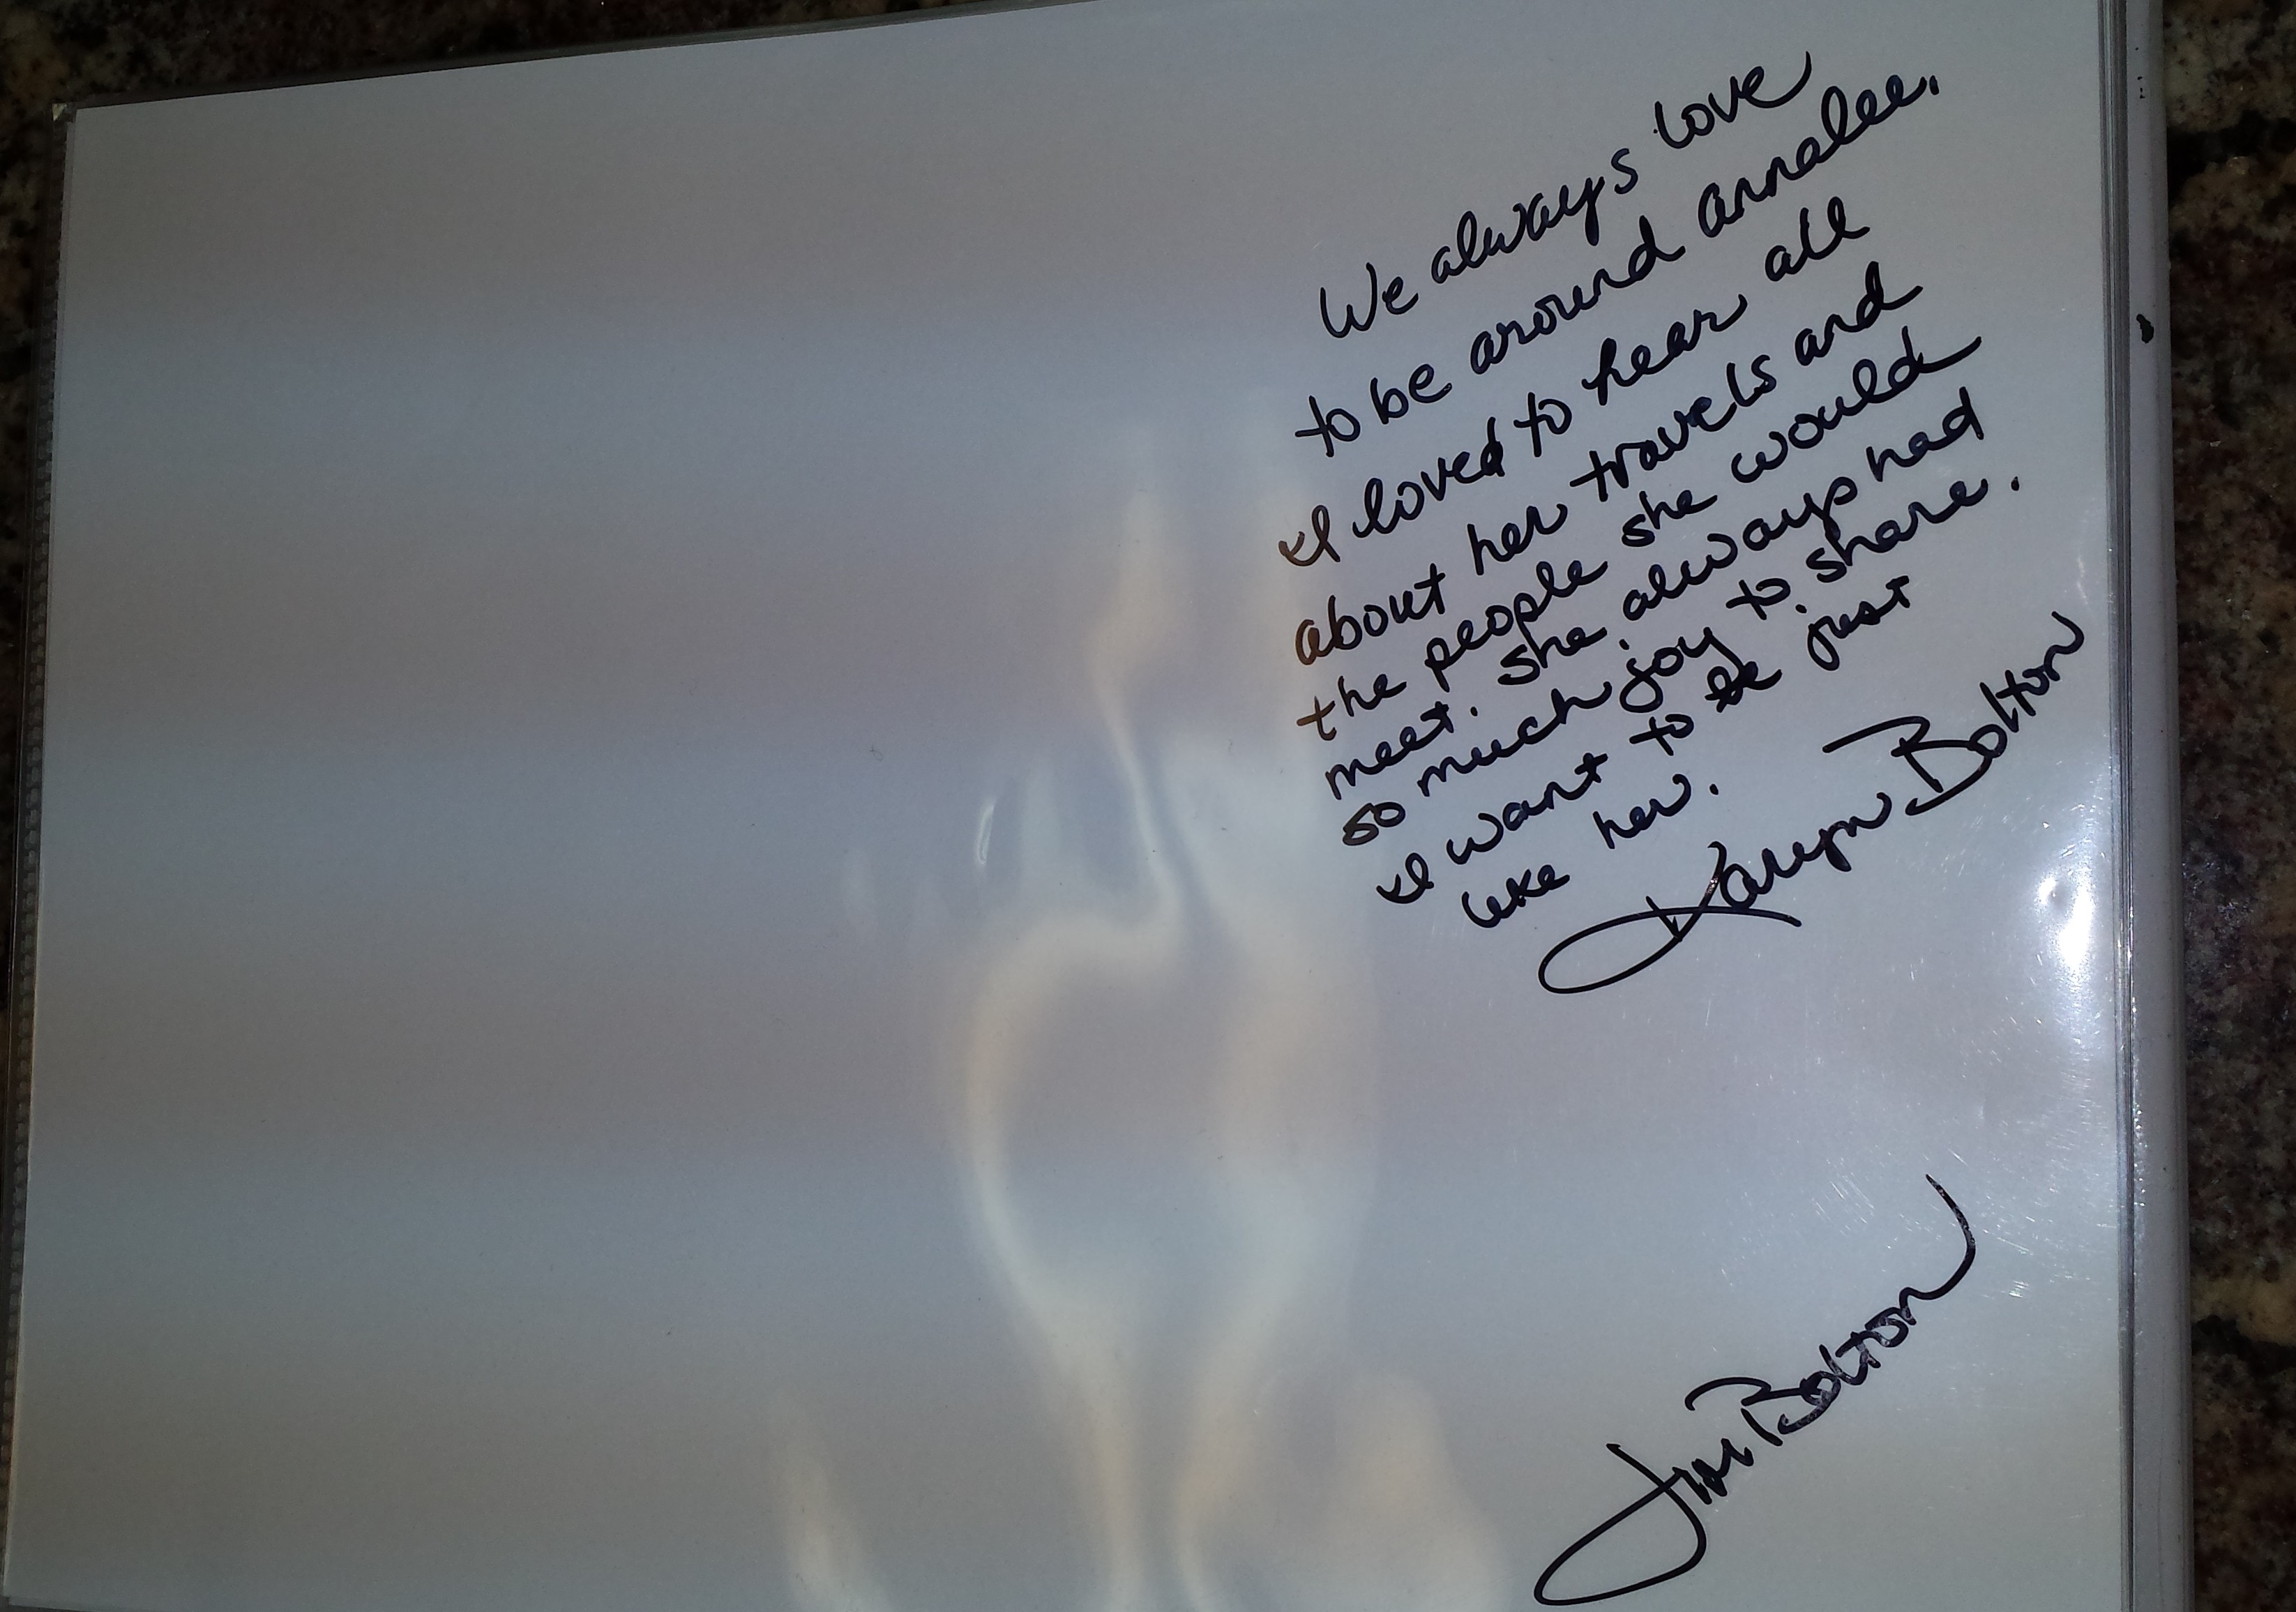 We always love
to be around annalee.
I loved to hear all
about her travels and
the people she would
meet. She always had
so much joy to share.
I want to be just
like her.
Karyn Bolton
Jim Bolton